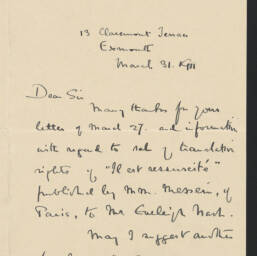 13 Claremont Terrace
Exmouth
March 31. 1911
Dear Sir
Many thanks for your
letter of March 27. and information
with regard to sale of translation
rights of "Il est ressuscité"
published by Mon. Messein, of
Paris, to Mr. Eveleigh Nash.
May I suggest another